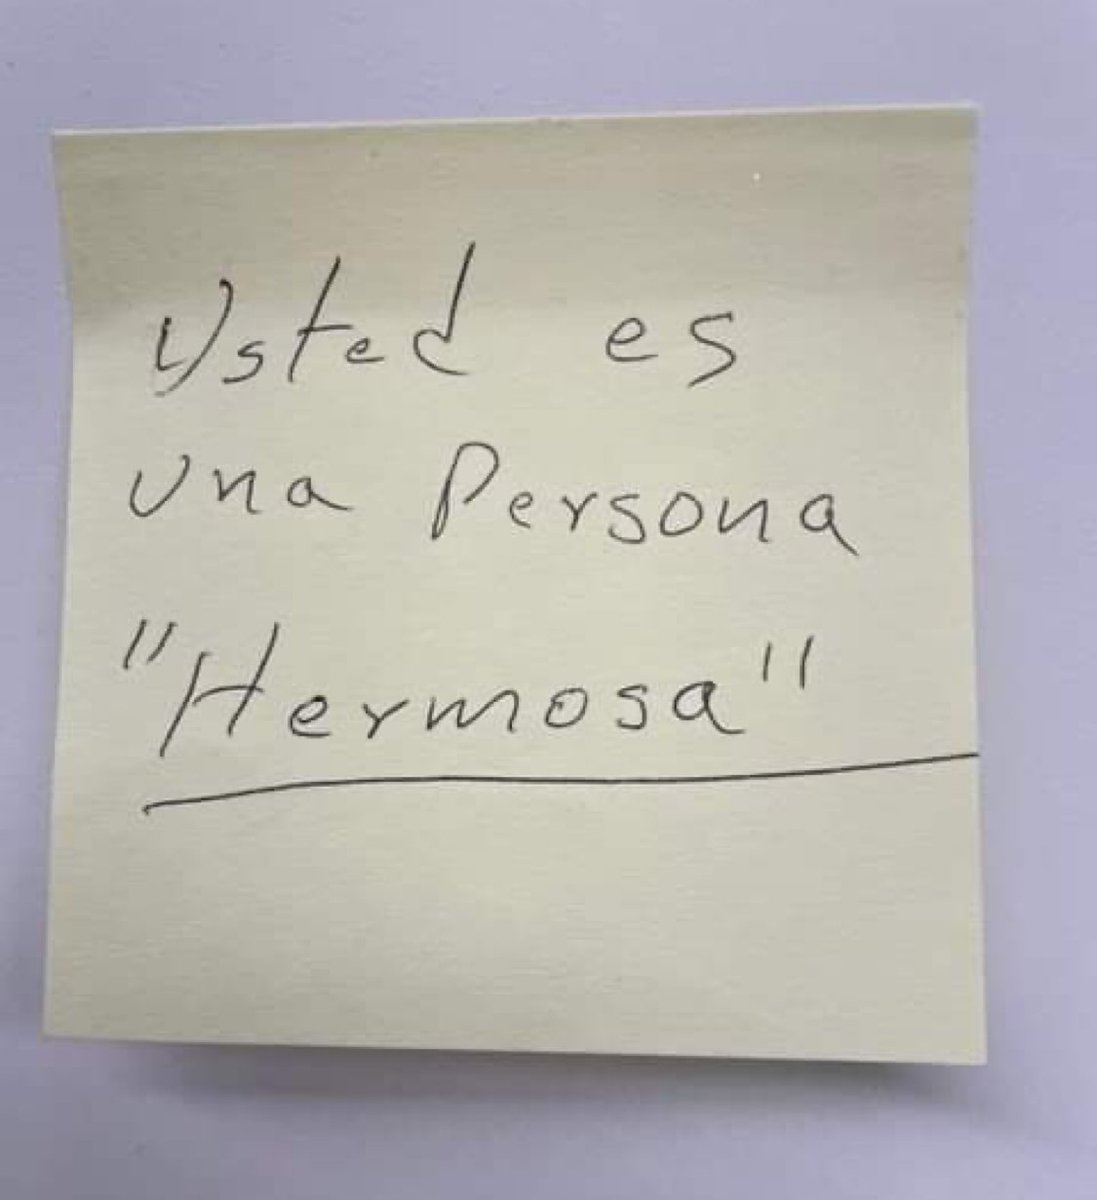 Usted es
una Persona
"Hermosa"